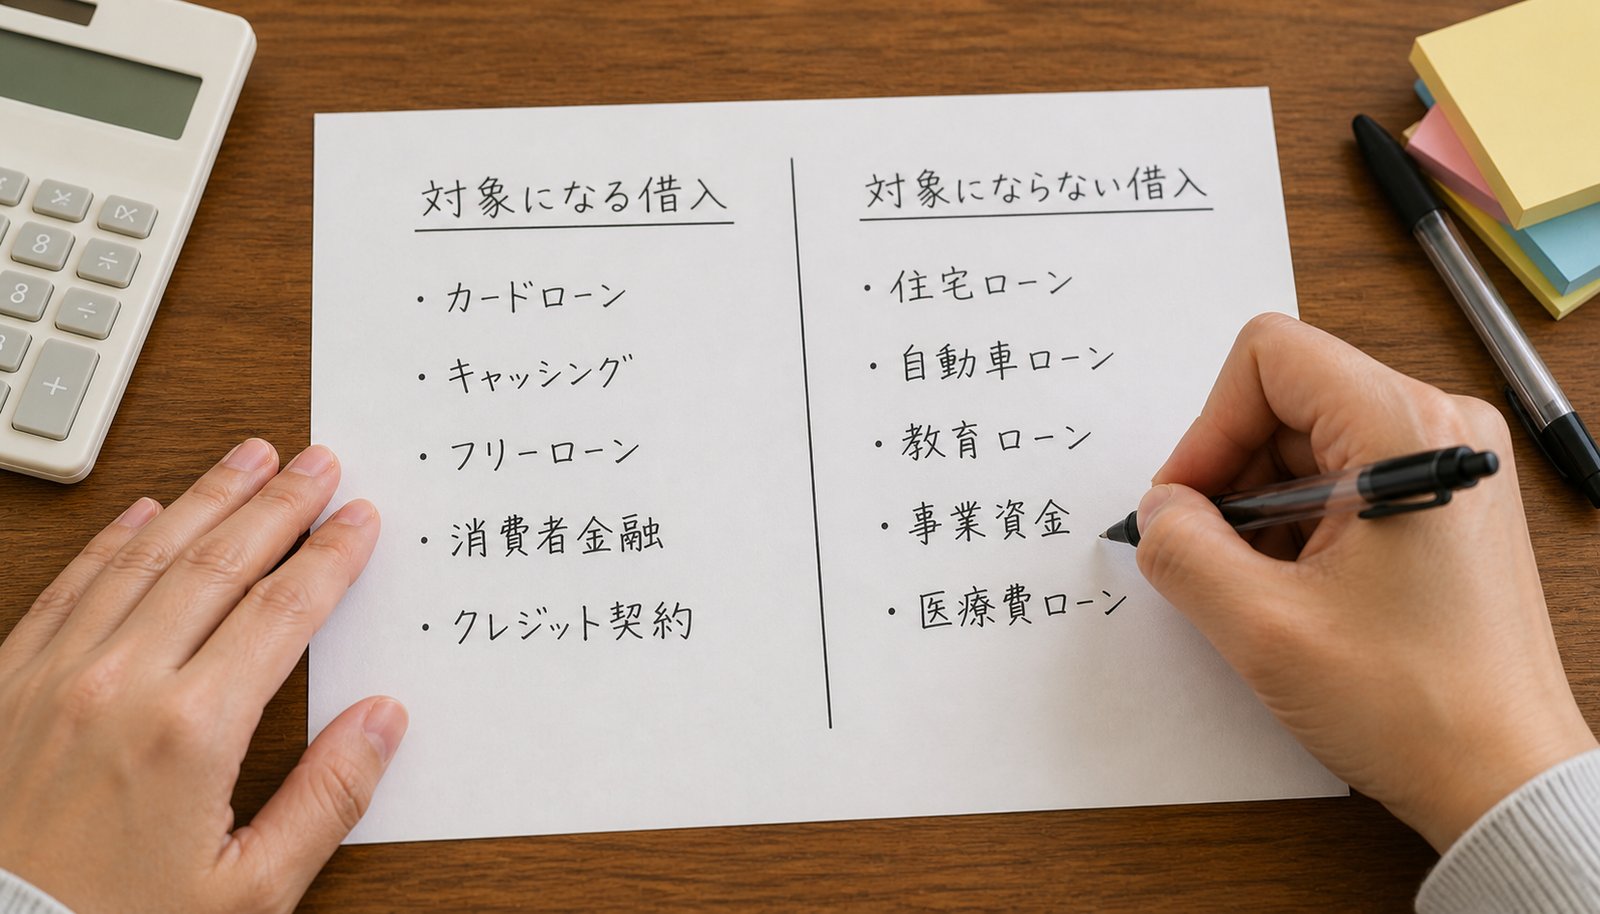 対象になる借入
・カードローン
・キャッシング
・フリーローン
・消費者金融
・クレジット契約
対象にならない借入
・住宅ローン
・自動車ローン
・教育ローン
・事業資金
・医療費ローン